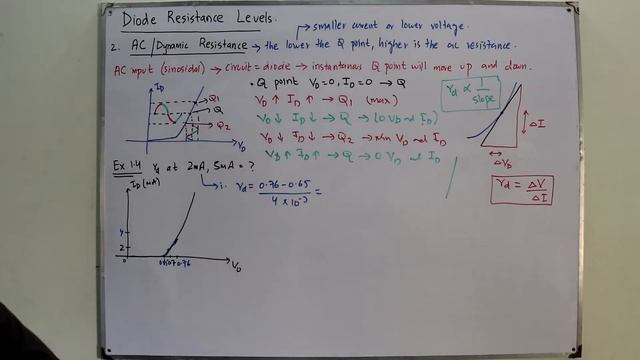 Diode Resistance Levels.
→ smaller current or lower voltage.
2. AC/Dynamic Resistance → the lower the Q point, higher is the ac resistance.
AC input (sinosidal) → circuit = diode → instantaneous Q point will move up and down.
• Q point V_D = 0, I_D = 0 → Q
V_D ↑ I_D ↑ → Q1 (max)
V_D ↓ I_D ↓ → Q → (0 V_D nd I_D)
V_D ↓ I_D ↓ → Q2 → min V_D nd I_D
V_D ↑ I_D ↑ → Q → 0 V_D nd I_D
I_D
Q1
Q
Q2
V_D
r_d ∝ 1/slope
ΔI
ΔV_D
r_d = ΔV/ΔI
Ex 1.4 r_d at 2mA, 5mA = ?
i. r_d = 0.76 - 0.65 / 4 × 10^-3 =
I_D (mA)
4
2
0
0.65 0.7 0.76
V_D